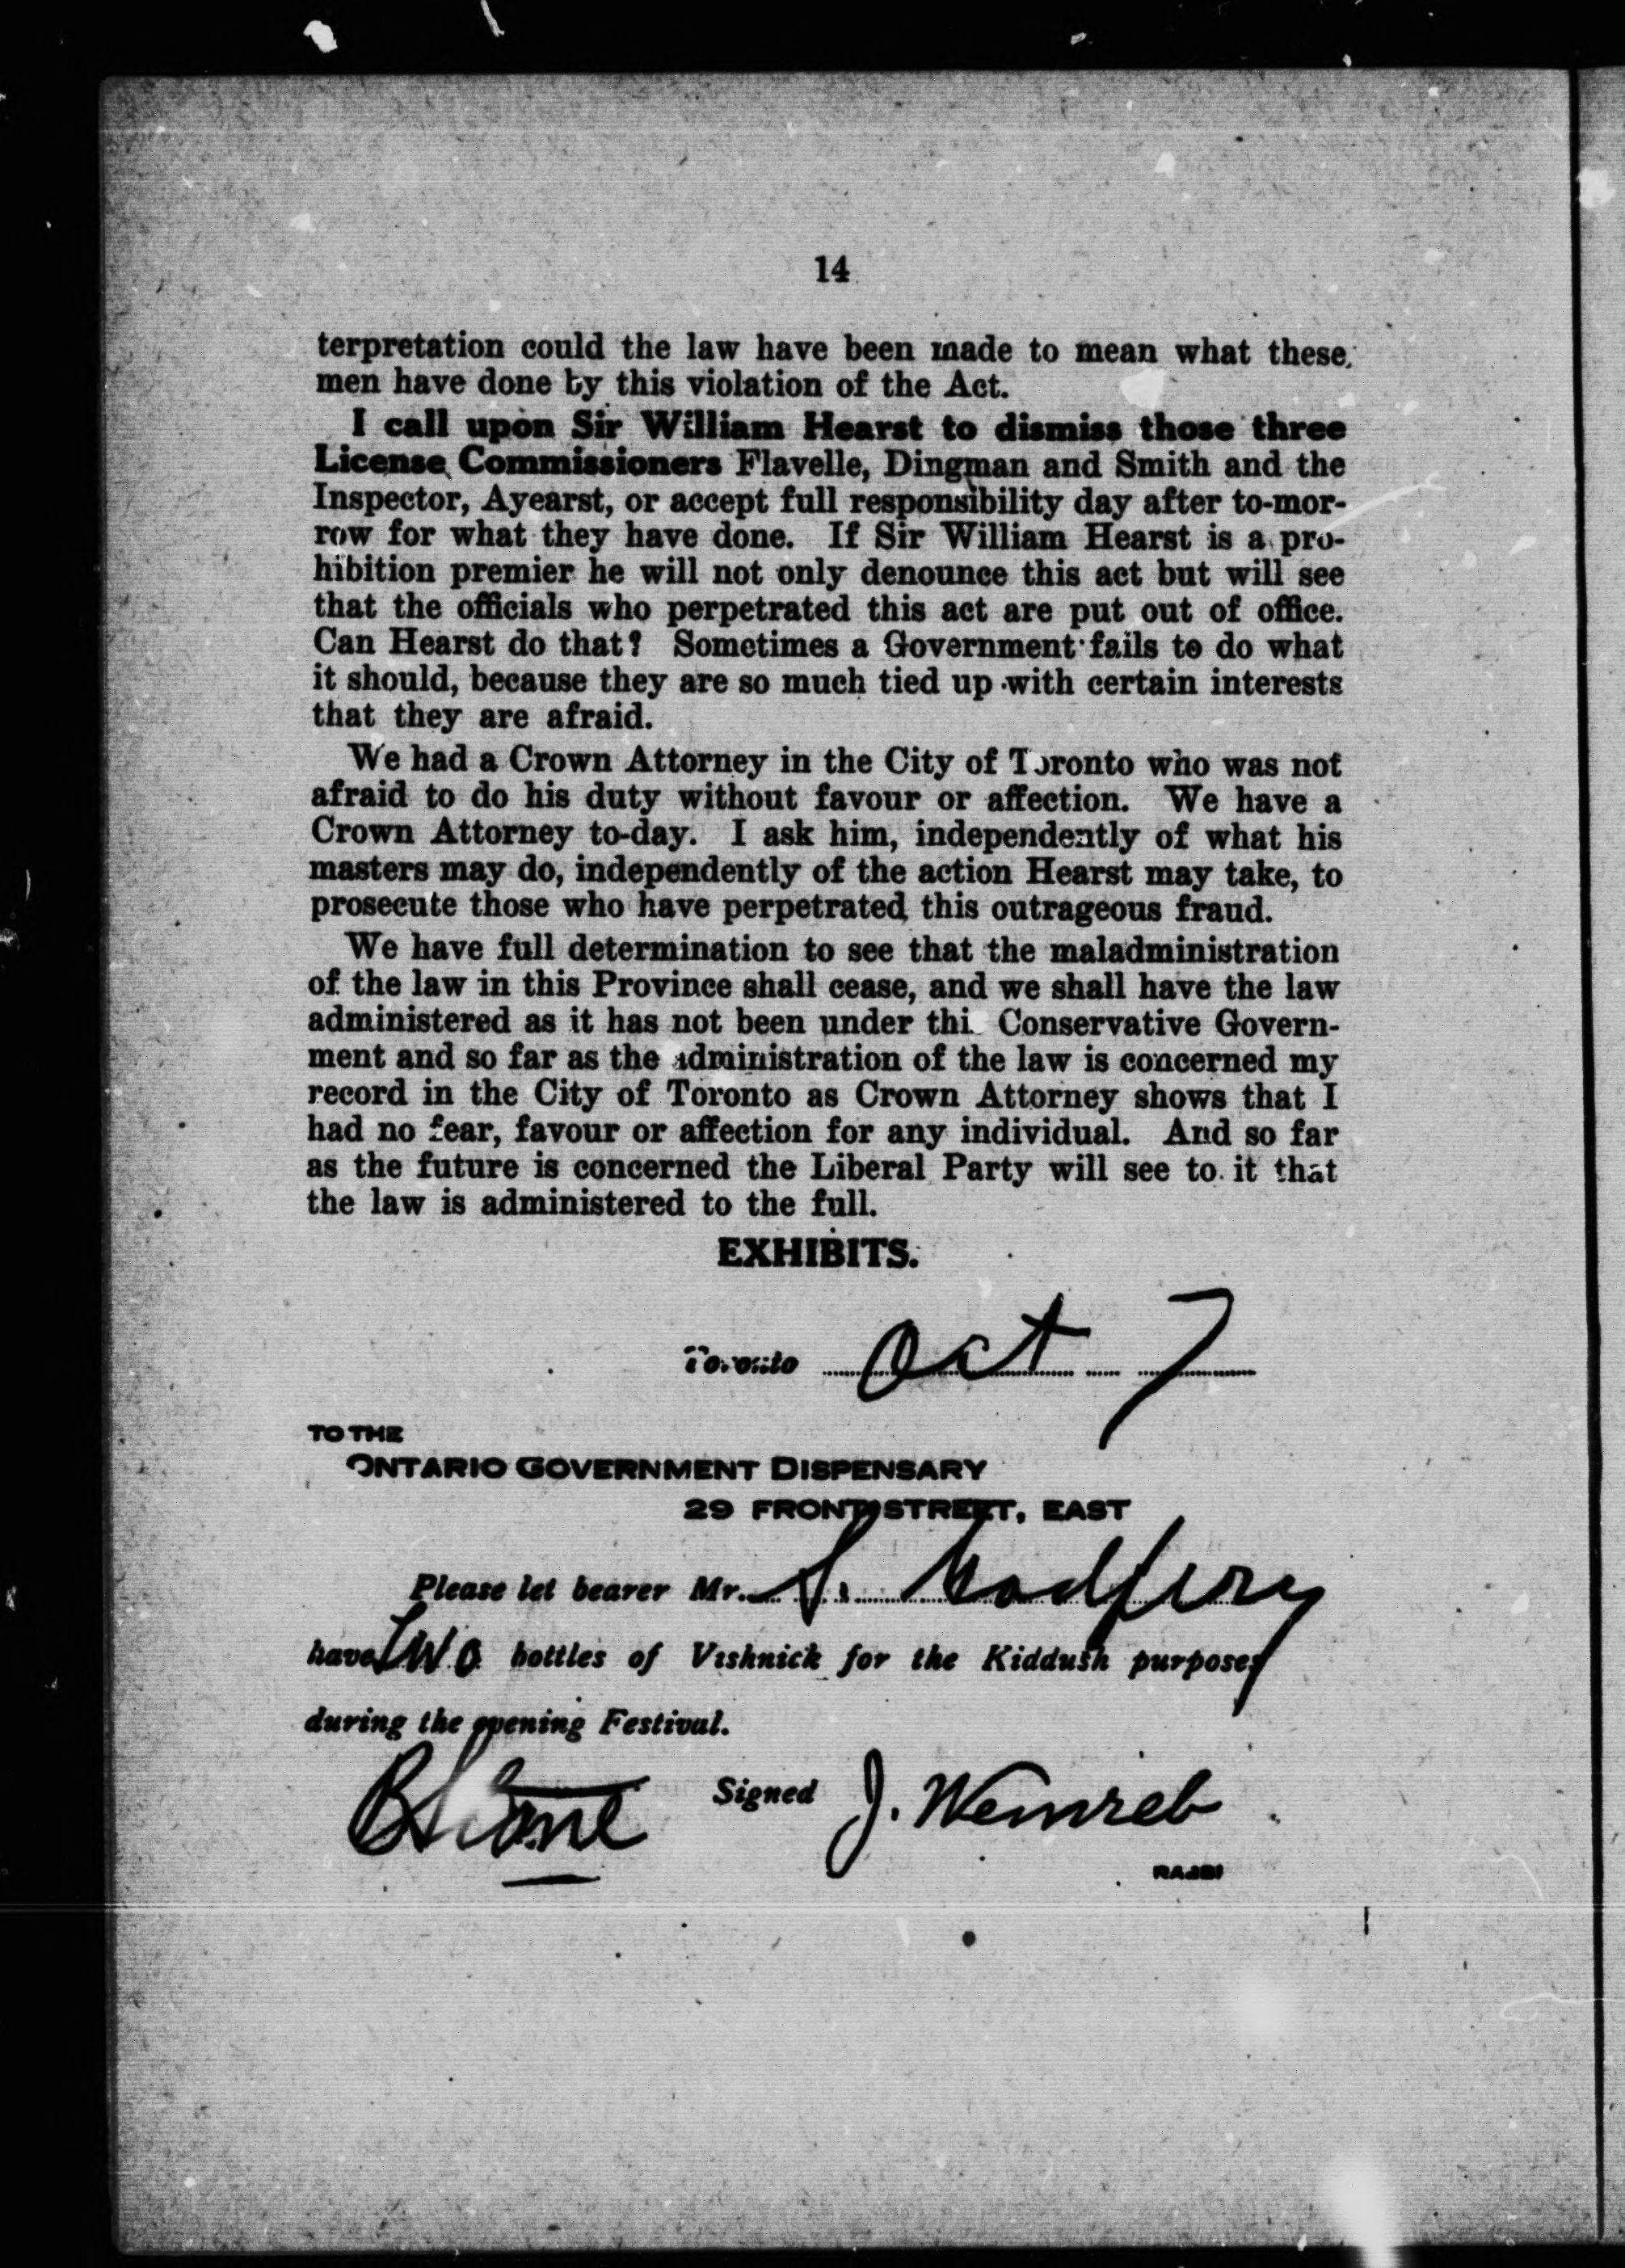 14
terpretation could the law have been made to mean what these
men have done by this violation of the Act.
I call upon Sir William Hearst to dismiss those three
License Commissioners Flavelle, Dingman and Smith and the
Inspector, Ayearst, or accept full responsibility day after to-mor-
row for what they have done. If Sir William Hearst is a pro-
hibition premier he will not only denounce this act but will see
that the officials who perpetrated this act are put out of office.
Can Hearst do that? Sometimes a Government fails to do what
it should, because they are so much tied up with certain interests
that they are afraid.
We had a Crown Attorney in the City of Toronto who was not
afraid to do his duty without favour or affection. We have a
Crown Attorney to-day. I ask him, independently of what his
masters may do, independently of the action Hearst may take, to
prosecute those who have perpetrated this outrageous fraud.
We have full determination to see that the maladministration
of the law in this Province shall cease, and we shall have the law
administered as it has not been under thi Conservative Govern-
ment and so far as the administration of the law is concerned my
record in the City of Toronto as Crown Attorney shows that I
had no fear, favour or affection for any individual. And so far
as the future is concerned the Liberal Party will see to it that
the law is administered to the full.
EXHIBITS.
Toronto Oct 7
TO THE
ONTARIO GOVERNMENT DISPENSARY
29 FRONT STREET, EAST
Please let bearer Mr. S.
have Two bottles of Vishnick for the Kiddush purposes
during the opening Festival.
Signed J. Weinreb
RABBI